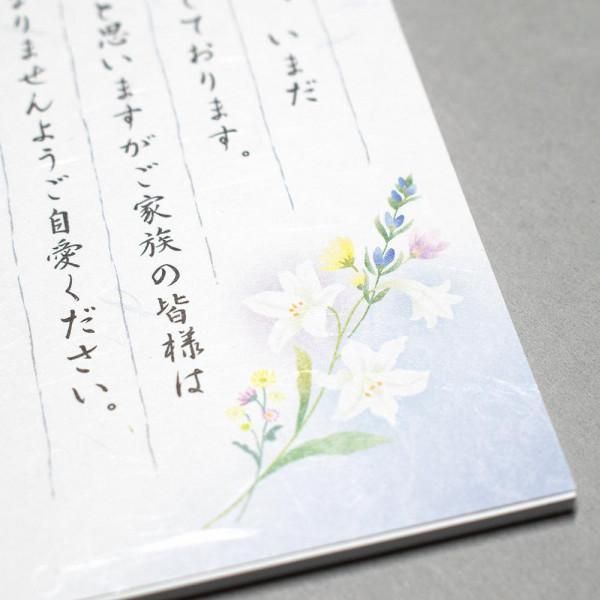 いまだ
ております。
と思いますがご家族の皆様は
りませんようご自愛ください。